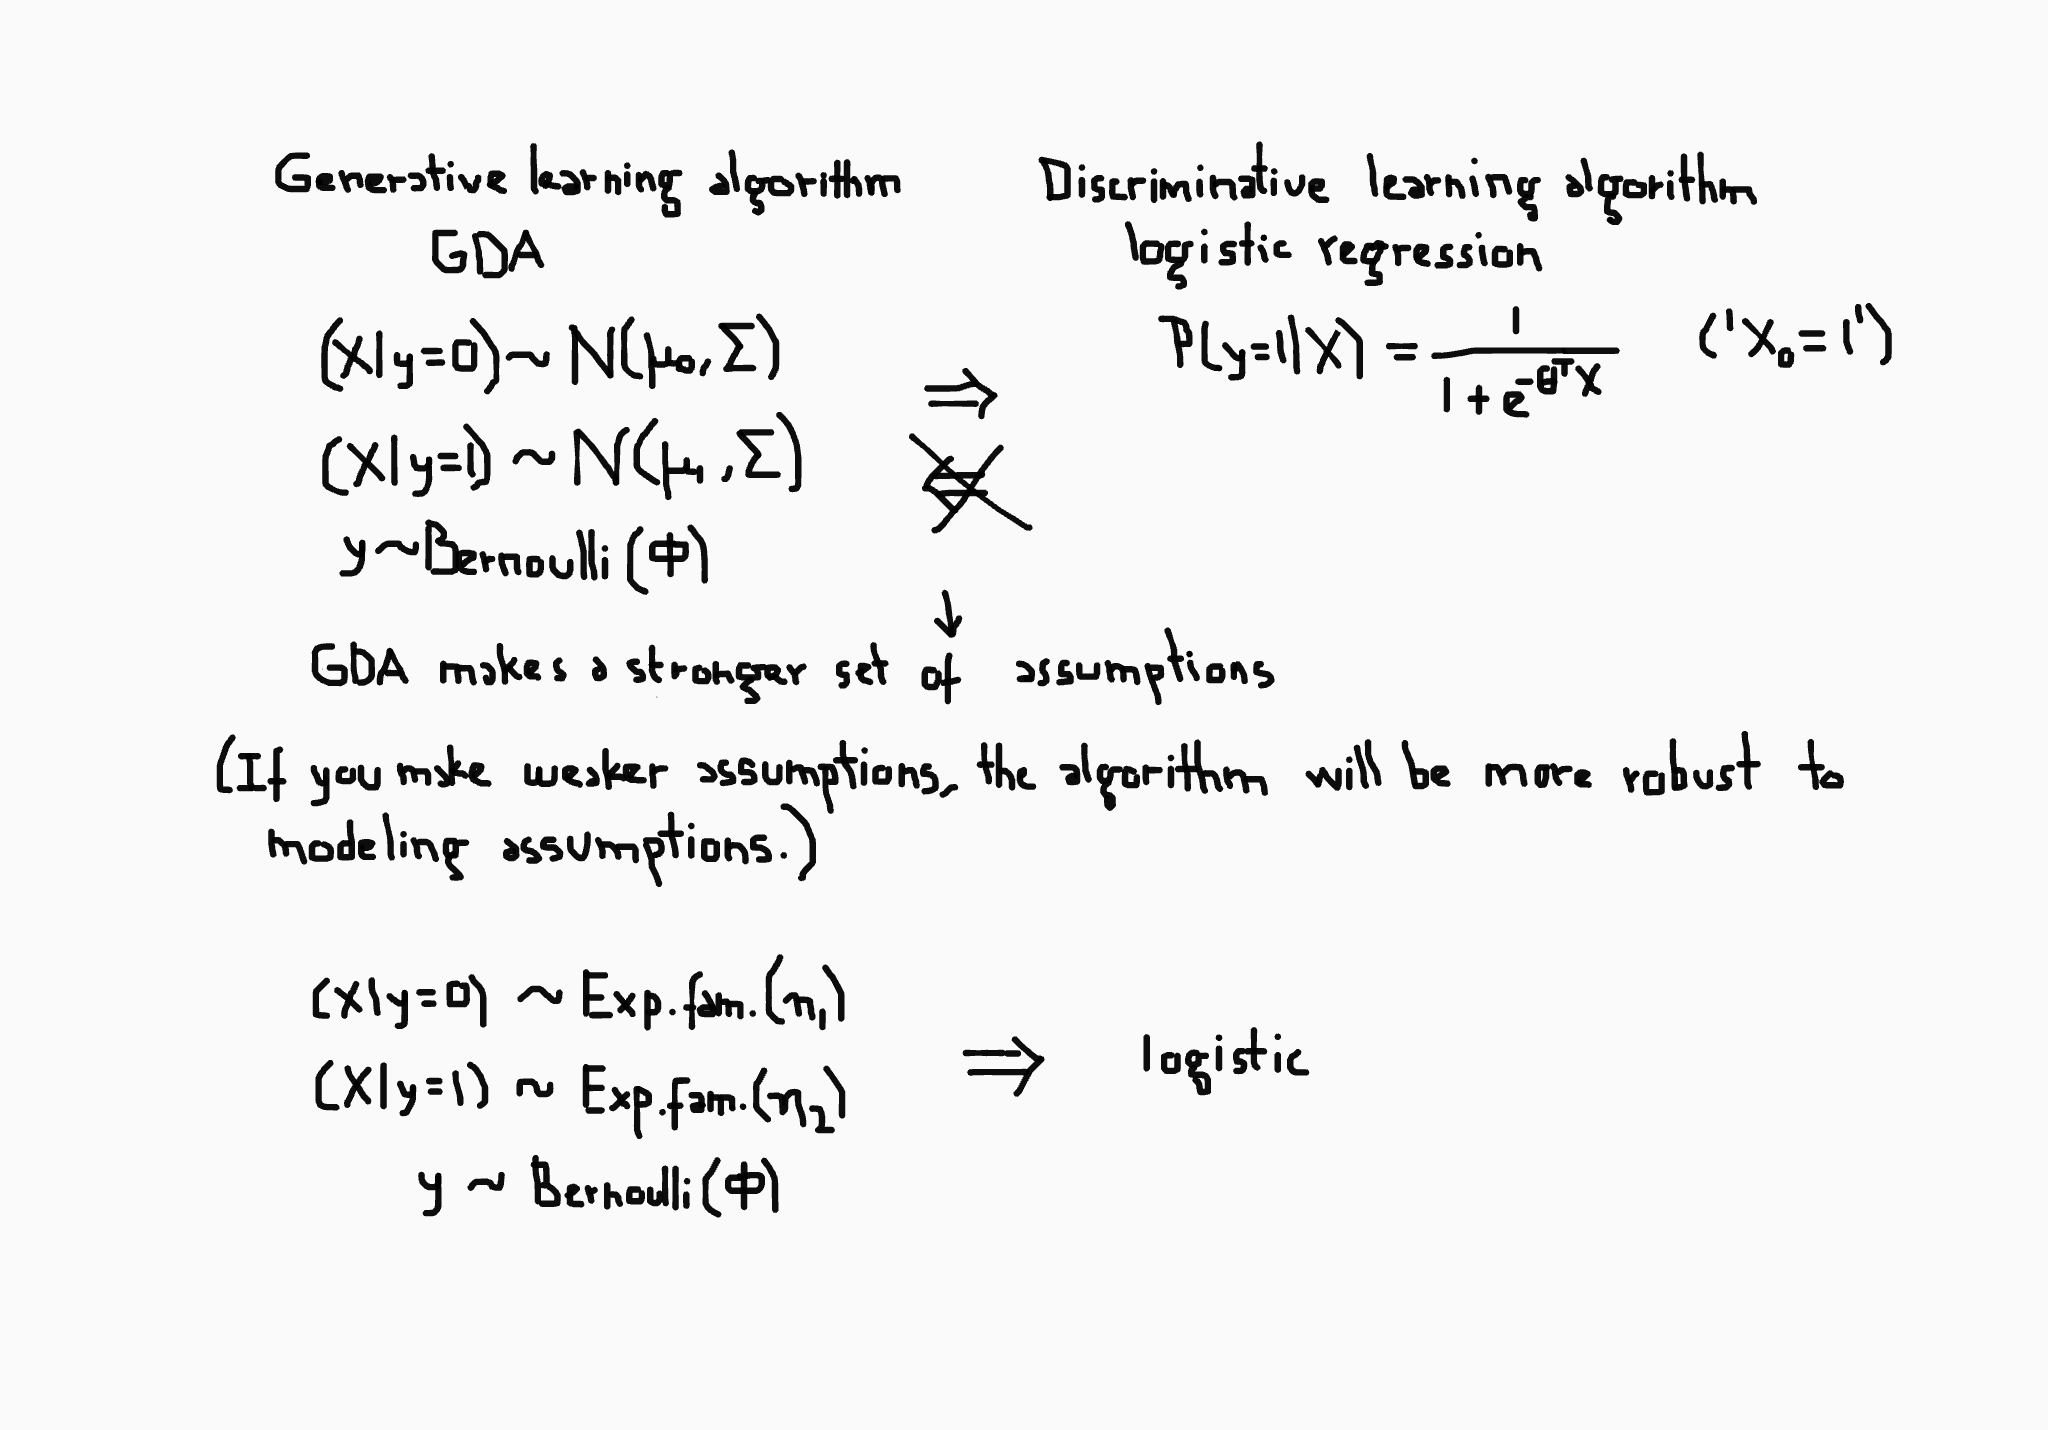 Generative learning algorithm
GDA
(X|y=0) ~ N(μ₀, Σ)
(X|y=1) ~ N(μ₁, Σ)
y ~ Bernoulli (Φ)
⇒
⇐
Discriminative learning algorithm
logistic regression
P(y=1|X) = 1 / (1 + e^(-θᵀX)) ('X₀ = 1')
↓
GDA makes a stronger set of assumptions
(If you make weaker assumptions, the algorithm will be more robust to
modeling assumptions.)
(X|y=0) ~ Exp.fam.(η₁)
(X|y=1) ~ Exp.fam.(η₂)
y ~ Bernoulli (Φ)
⇒ logistic